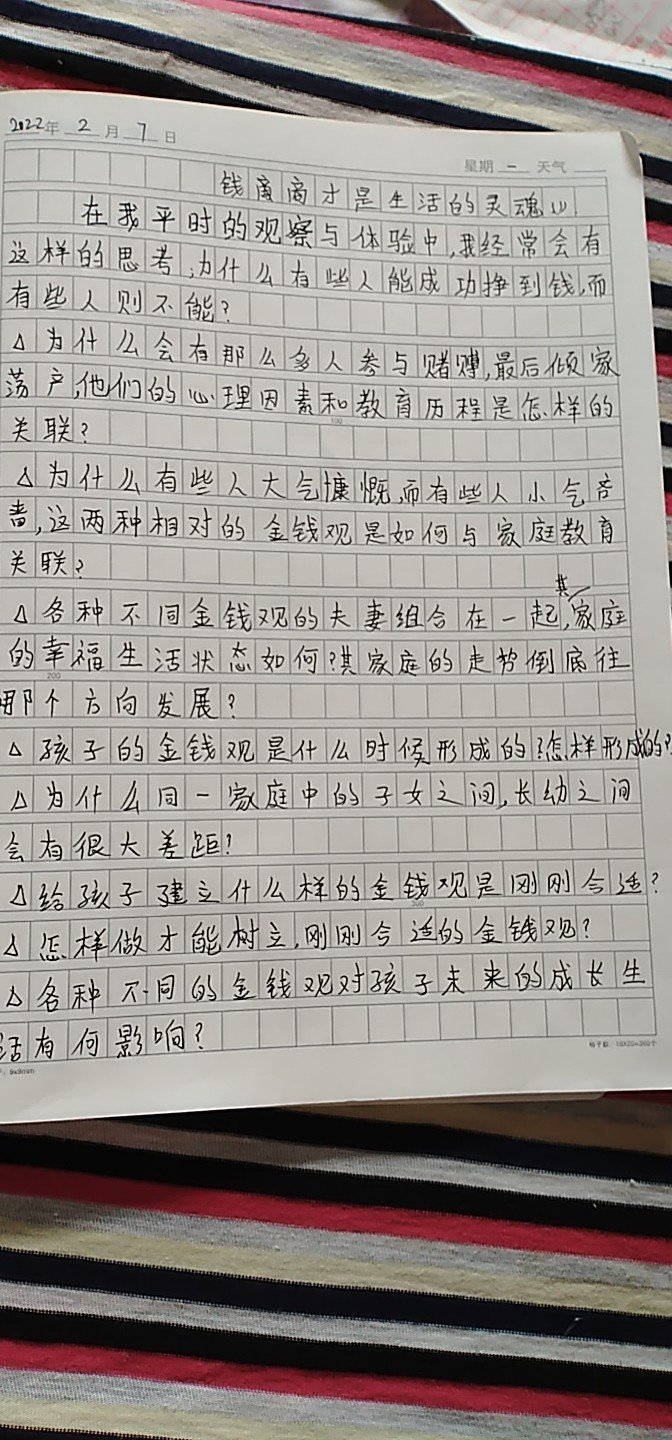 2022年 2 月 7 日
星期 一 天气
钱商商才是生活的灵魂(1)
在我平时的观察与体验中,我经常会有
这样的思考,为什么有些人能成功挣到钱,而
有些人则不能?
△为什么会有那么多人参与赌博,最后倾家
荡产,他们的心理因素和教育历程是怎样的
100
关联?
△为什么有些人大气慷慨,而有些人小气吝
啬,这两种相对的金钱观是如何与家庭教育
关联?
△各种不同金钱观的夫妻组合在一起,其家庭
的幸福生活状态如何?其家庭的走势倒底往
200
哪个方向发展?
△孩子的金钱观是什么时候形成的?怎样形成的?
△为什么同一家庭中的子女之间,长幼之间
会有很大差距?
△给孩子建立什么样的金钱观是刚刚合适?
300
△怎样做才能树立,刚刚合适的金钱观?
△各种不同的金钱观对孩子未来的成长生
活有何影响?
9x9mm
格子数:18X20=360个